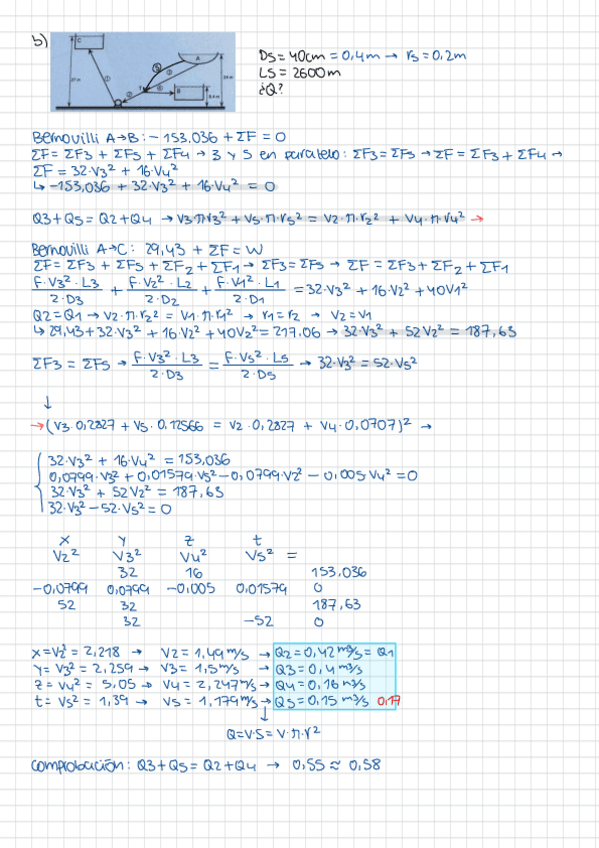 b)
C
A
B
Ds = 40cm = 0,4m → rs = 0,2m
Ls = 2600m
¿Q?
Bernouilli A→B: - 153.036 + ΣF = 0
ΣF = ΣF3 + ΣF5 + ΣF4 → 3 y 5 en paralelo: ΣF3 = ΣF5 → ΣF = ΣF3 + ΣF4 →
ΣF = 32·V3² + 16·V4²
↳ -153,036 + 32·V3² + 16·V4² = 0
Q3 + Q5 = Q2 + Q4 → V3·π·r3² + V5·π·r5² = V2·π·r2² + V4·π·r4² →
Bernouilli A→C: 29,43 + ΣF = W
ΣF = ΣF3 + ΣF5 + ΣF2 + ΣF1 → ΣF3 = ΣF5 → ΣF = ΣF3 + ΣF2 + ΣF1
f·V3²·L3 / 2·D3 + f·V2²·L2 / 2·D2 + f·V1²·L1 / 2·D1 = 32·V3² + 16·V2² + 40V1²
Q2 = Q1 → V2·π·r2² = V1·π·r1² → r1 = r2 → V2 = V1
↳ 29,43 + 32·V3² + 16·V2² + 40V2² = 217.06 → 32·V3² + 52V2² = 187,63
ΣF3 = ΣF5 → f·V3²·L3 / 2·D3 = f·V5²·L5 / 2·D5 → 32·V3² = 52·V5²
↓
→ (V3·0,2827 + V5·0,12566 = V2·0,2827 + V4·0,0707)² →
32·V3² + 16·V4² = 153,036
0,0799·V3² + 0,01579·V5² - 0,0799·V2² - 0,005·V4² = 0
32·V3² + 52V2² = 187,63
32·V3² - 52·V5² = 0
x y z t
V2² V3² V4² V5² =
32 16 153,036
-0,0799 0,0799 -0,005 0,01579 0
52 32 187,63
32 -52 0
x = V2² = 2,218 → V2 = 1,49 m/s → Q2 = 0,42 m³/s = Q1
y = V3² = 2,259 → V3 = 1,5 m/s → Q3 = 0,4 m³/s
z = V4² = 5,05 → V4 = 2,247 m/s → Q4 = 0,16 m³/s
t = V5² = 1,39 → V5 = 1,179 m/s → Q5 = 0,15 m³/s 0,17
↓
Q = V·S = V·π·r²
comprobación: Q3 + Q5 = Q2 + Q4 → 0,55 ≈ 0,58